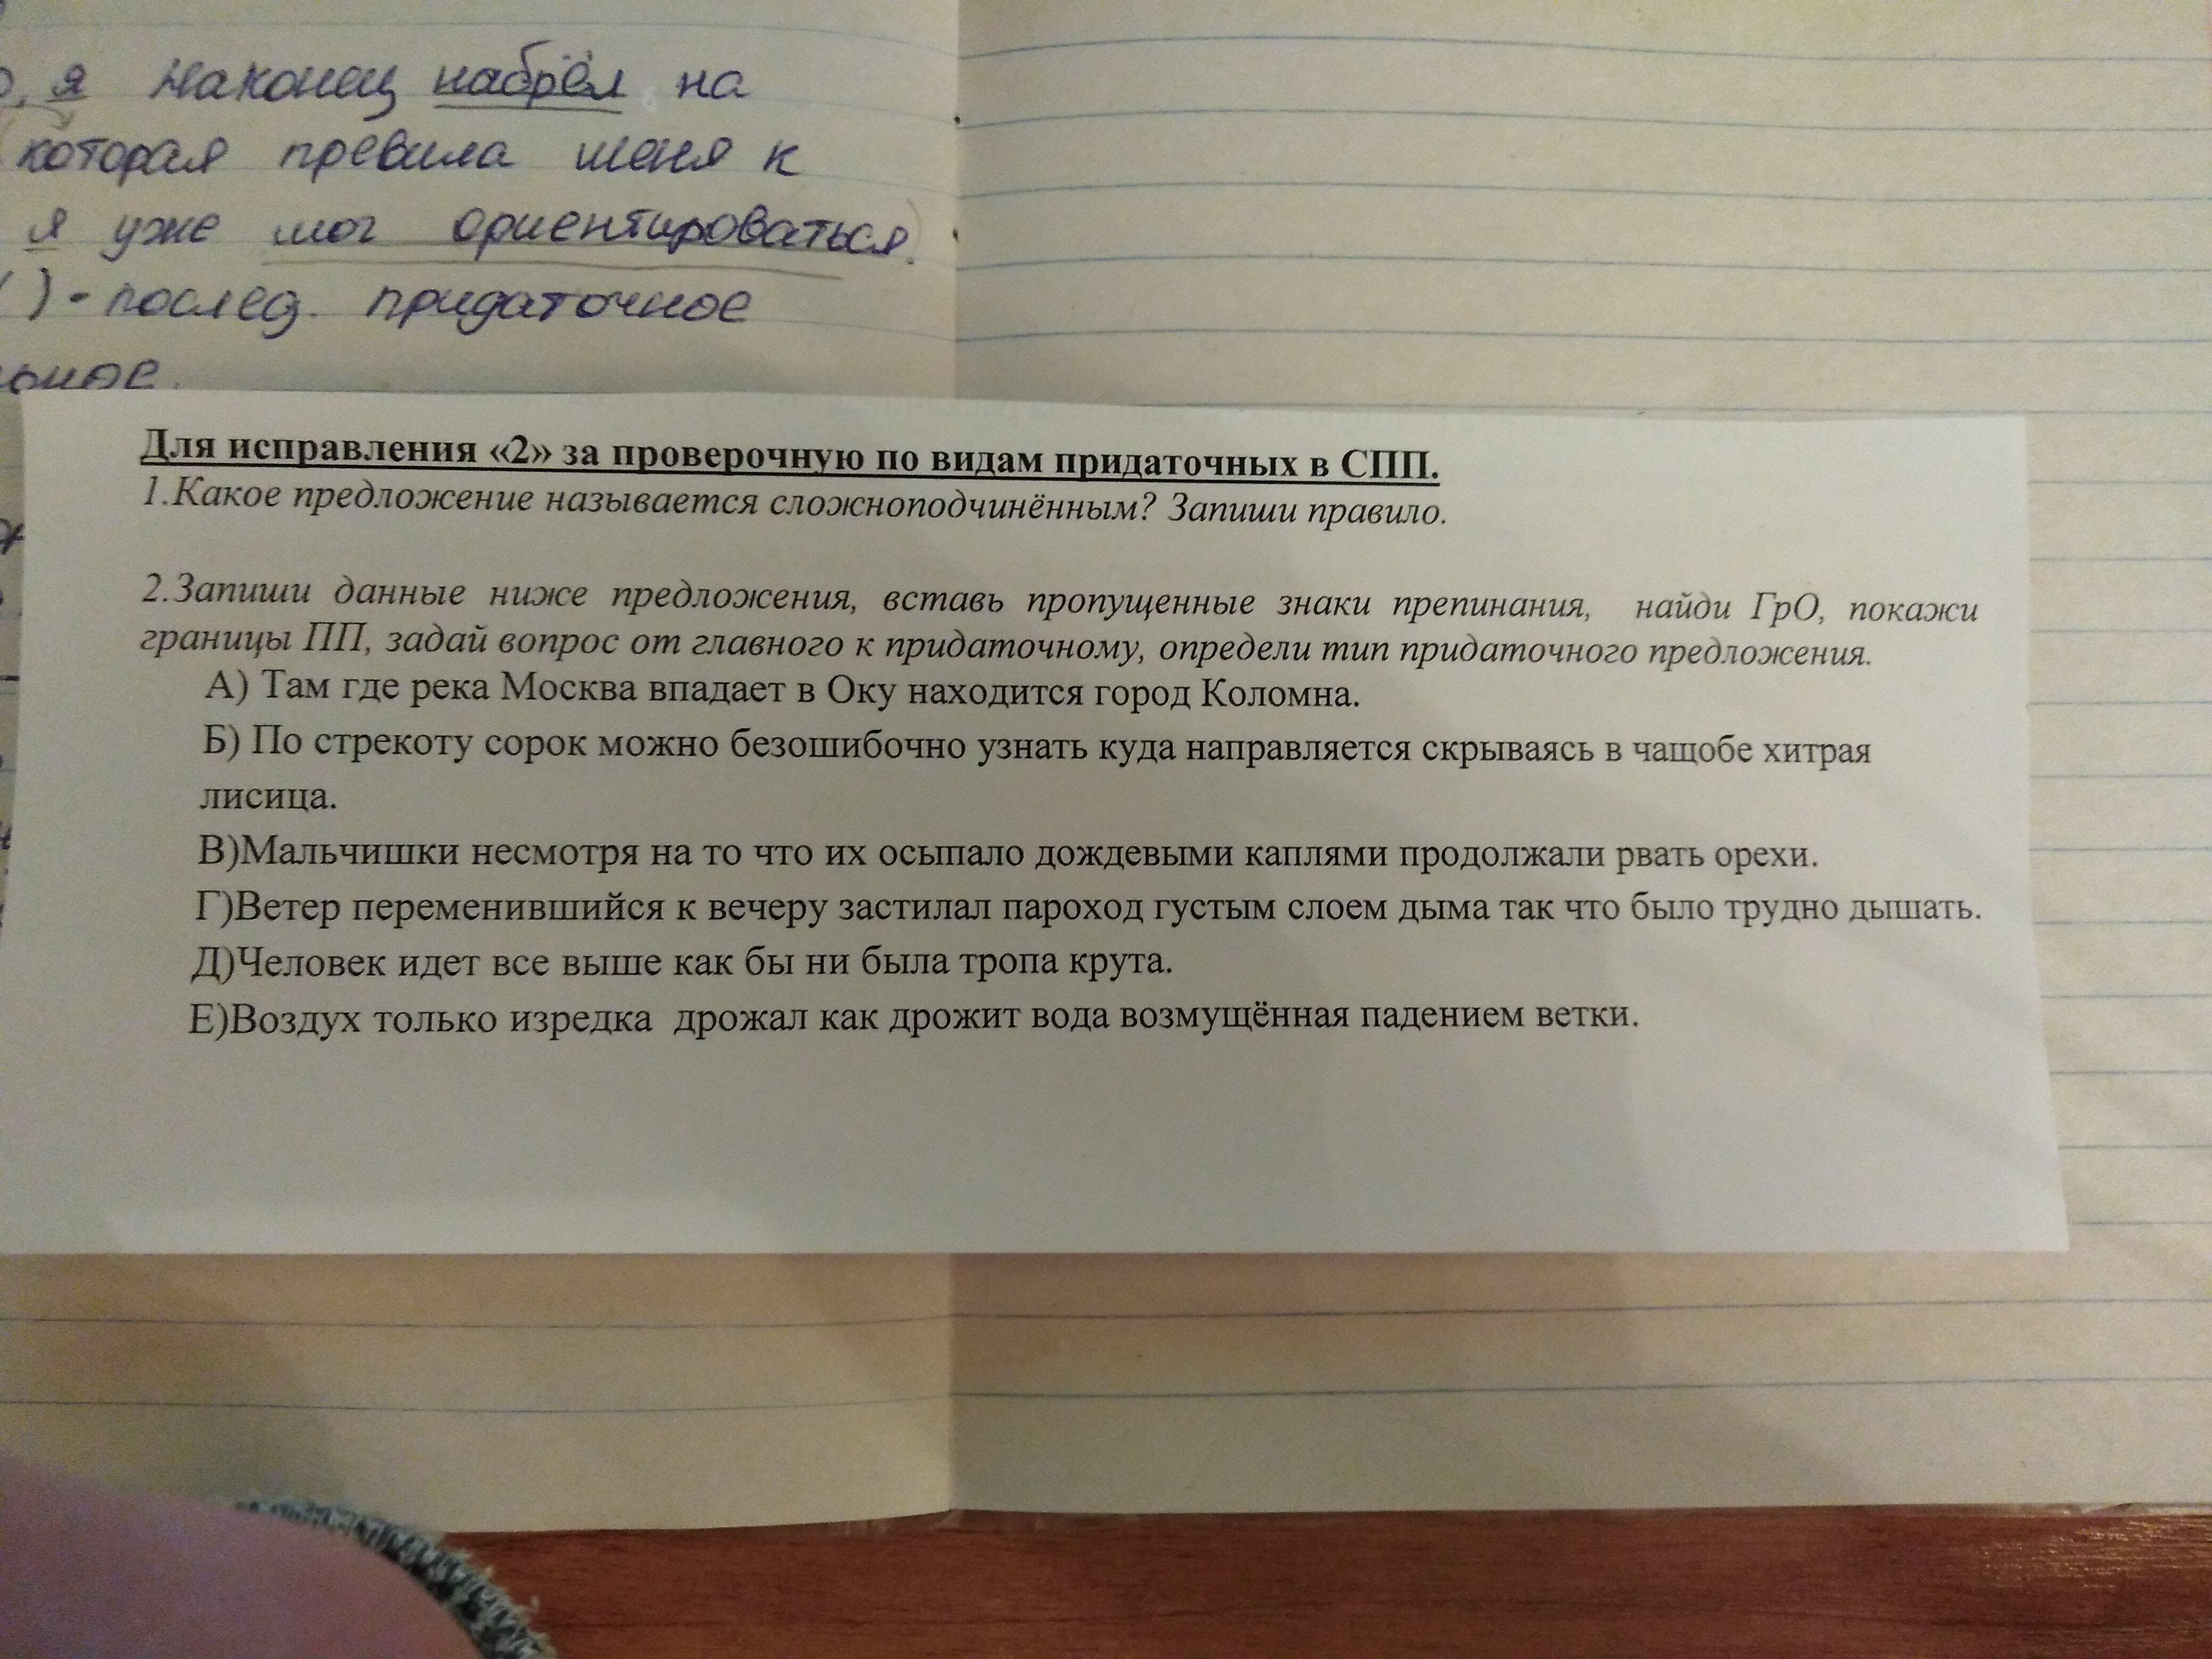 , я наконец набрёл на
которая превила меня к
я уже мог ориентироваться.
( ) - послед. придаточное
Для исправления «2» за проверочную по видам придаточных в СПП.
1.Какое предложение называется сложноподчинённым? Запиши правило.
2.Запиши данные ниже предложения, вставь пропущенные знаки препинания, найди ГрО, покажи
границы ПП, задай вопрос от главного к придаточному, определи тип придаточного предложения.
А) Там где река Москва впадает в Оку находится город Коломна.
Б) По стрекоту сорок можно безошибочно узнать куда направляется скрываясь в чащобе хитрая
лисица.
В)Мальчишки несмотря на то что их осыпало дождевыми каплями продолжали рвать орехи.
Г)Ветер переменившийся к вечеру застилал пароход густым слоем дыма так что было трудно дышать.
Д)Человек идет все выше как бы ни была тропа крута.
Е)Воздух только изредка дрожал как дрожит вода возмущённая падением ветки.